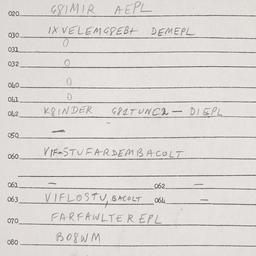 020 G8IMIR AEPL
030 IXVELEMG8EB+ DEMEPL
031 0
032 0
040 0
041 0
042 K8INDER G82TUNC2 — DIEPL
050 —
060 VIF-STUFARDEMBACOLT
061 — 062 —
063 VIFLOSTU, BACOLT 064 —
070 FARFAWLTEREPL
080 BO8WM